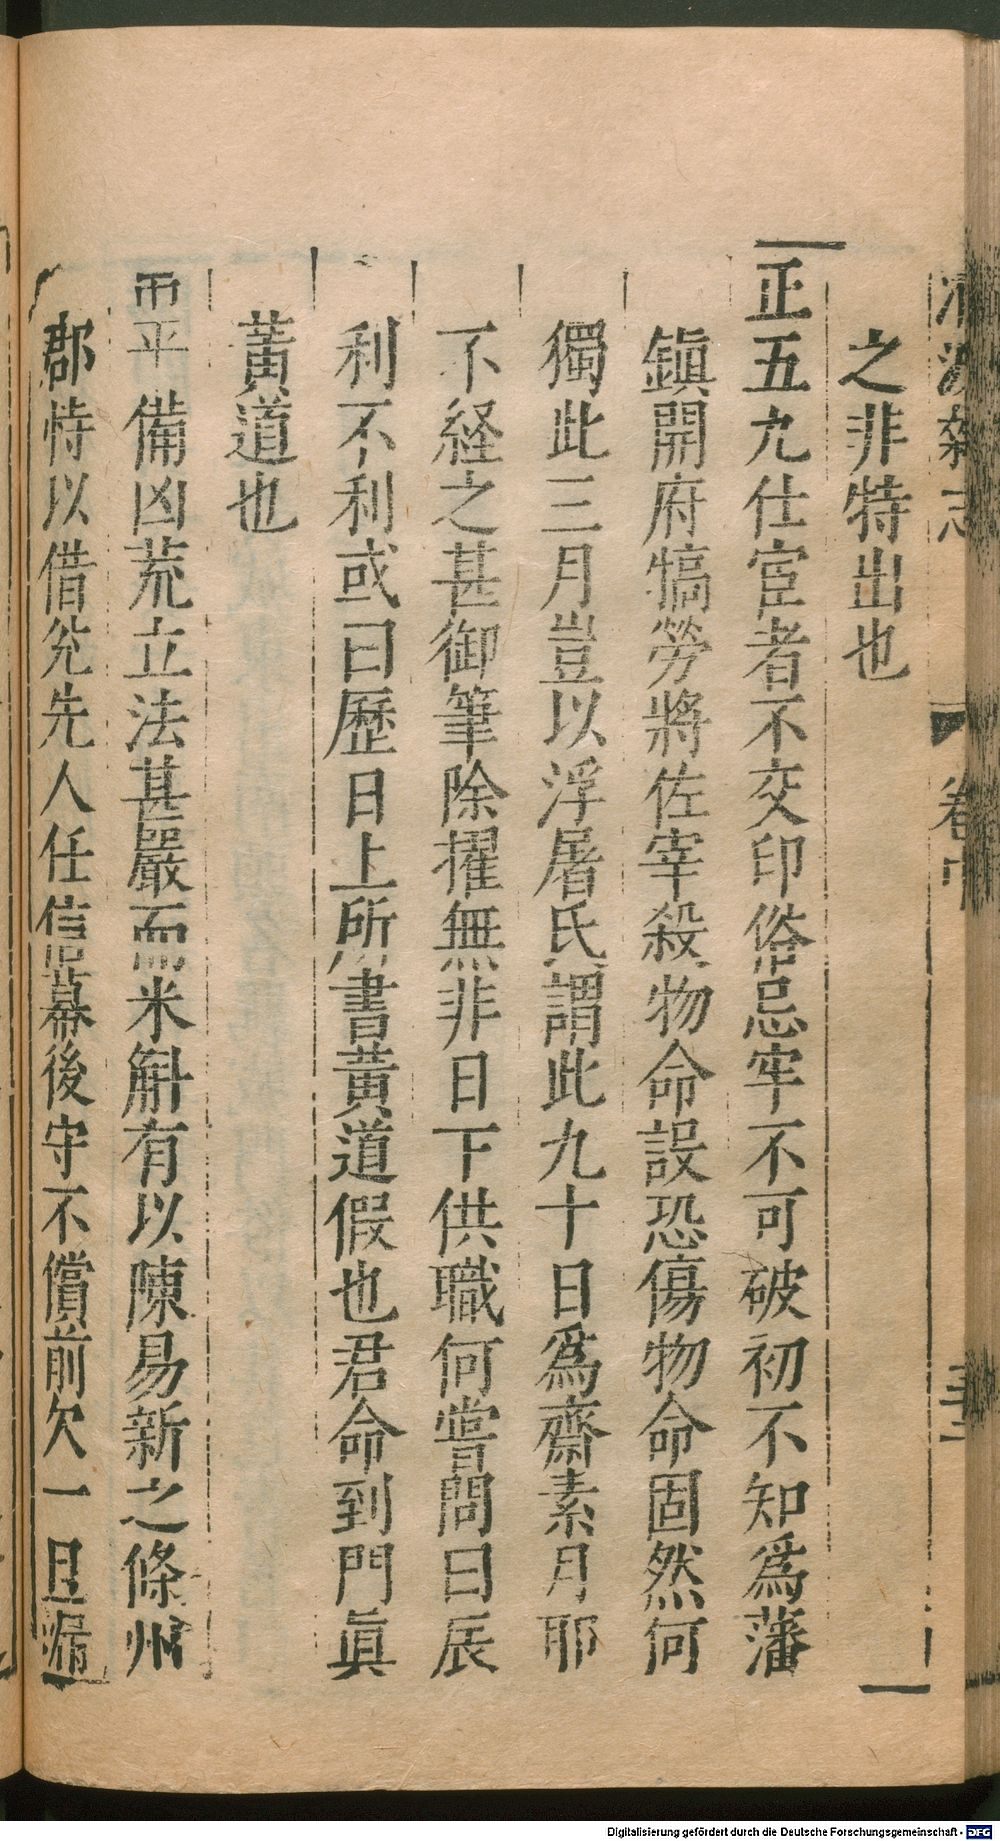 清波雜志 卷中 三二
之非特出也
正五九仕宦者不交印俗忌牢不可破初不知爲藩
鎮開府犒勞將佐宰殺物命設恐傷物命固然何
獨此三月豈以浮屠氏謂此九十日爲齋素月耶
不経之甚御筆除擢無非日下供職何嘗問日辰
利不利或曰歷日上所書黄道假也君命到門眞
黃道也
平備凶荒立法甚嚴而米斛有以陳易新之條州
郡恃以借兊先人任信幕後守不償前欠一旦漏
Digitalisierung gefördert durch die Deutsche Forschungsgemeinschaft - DFG